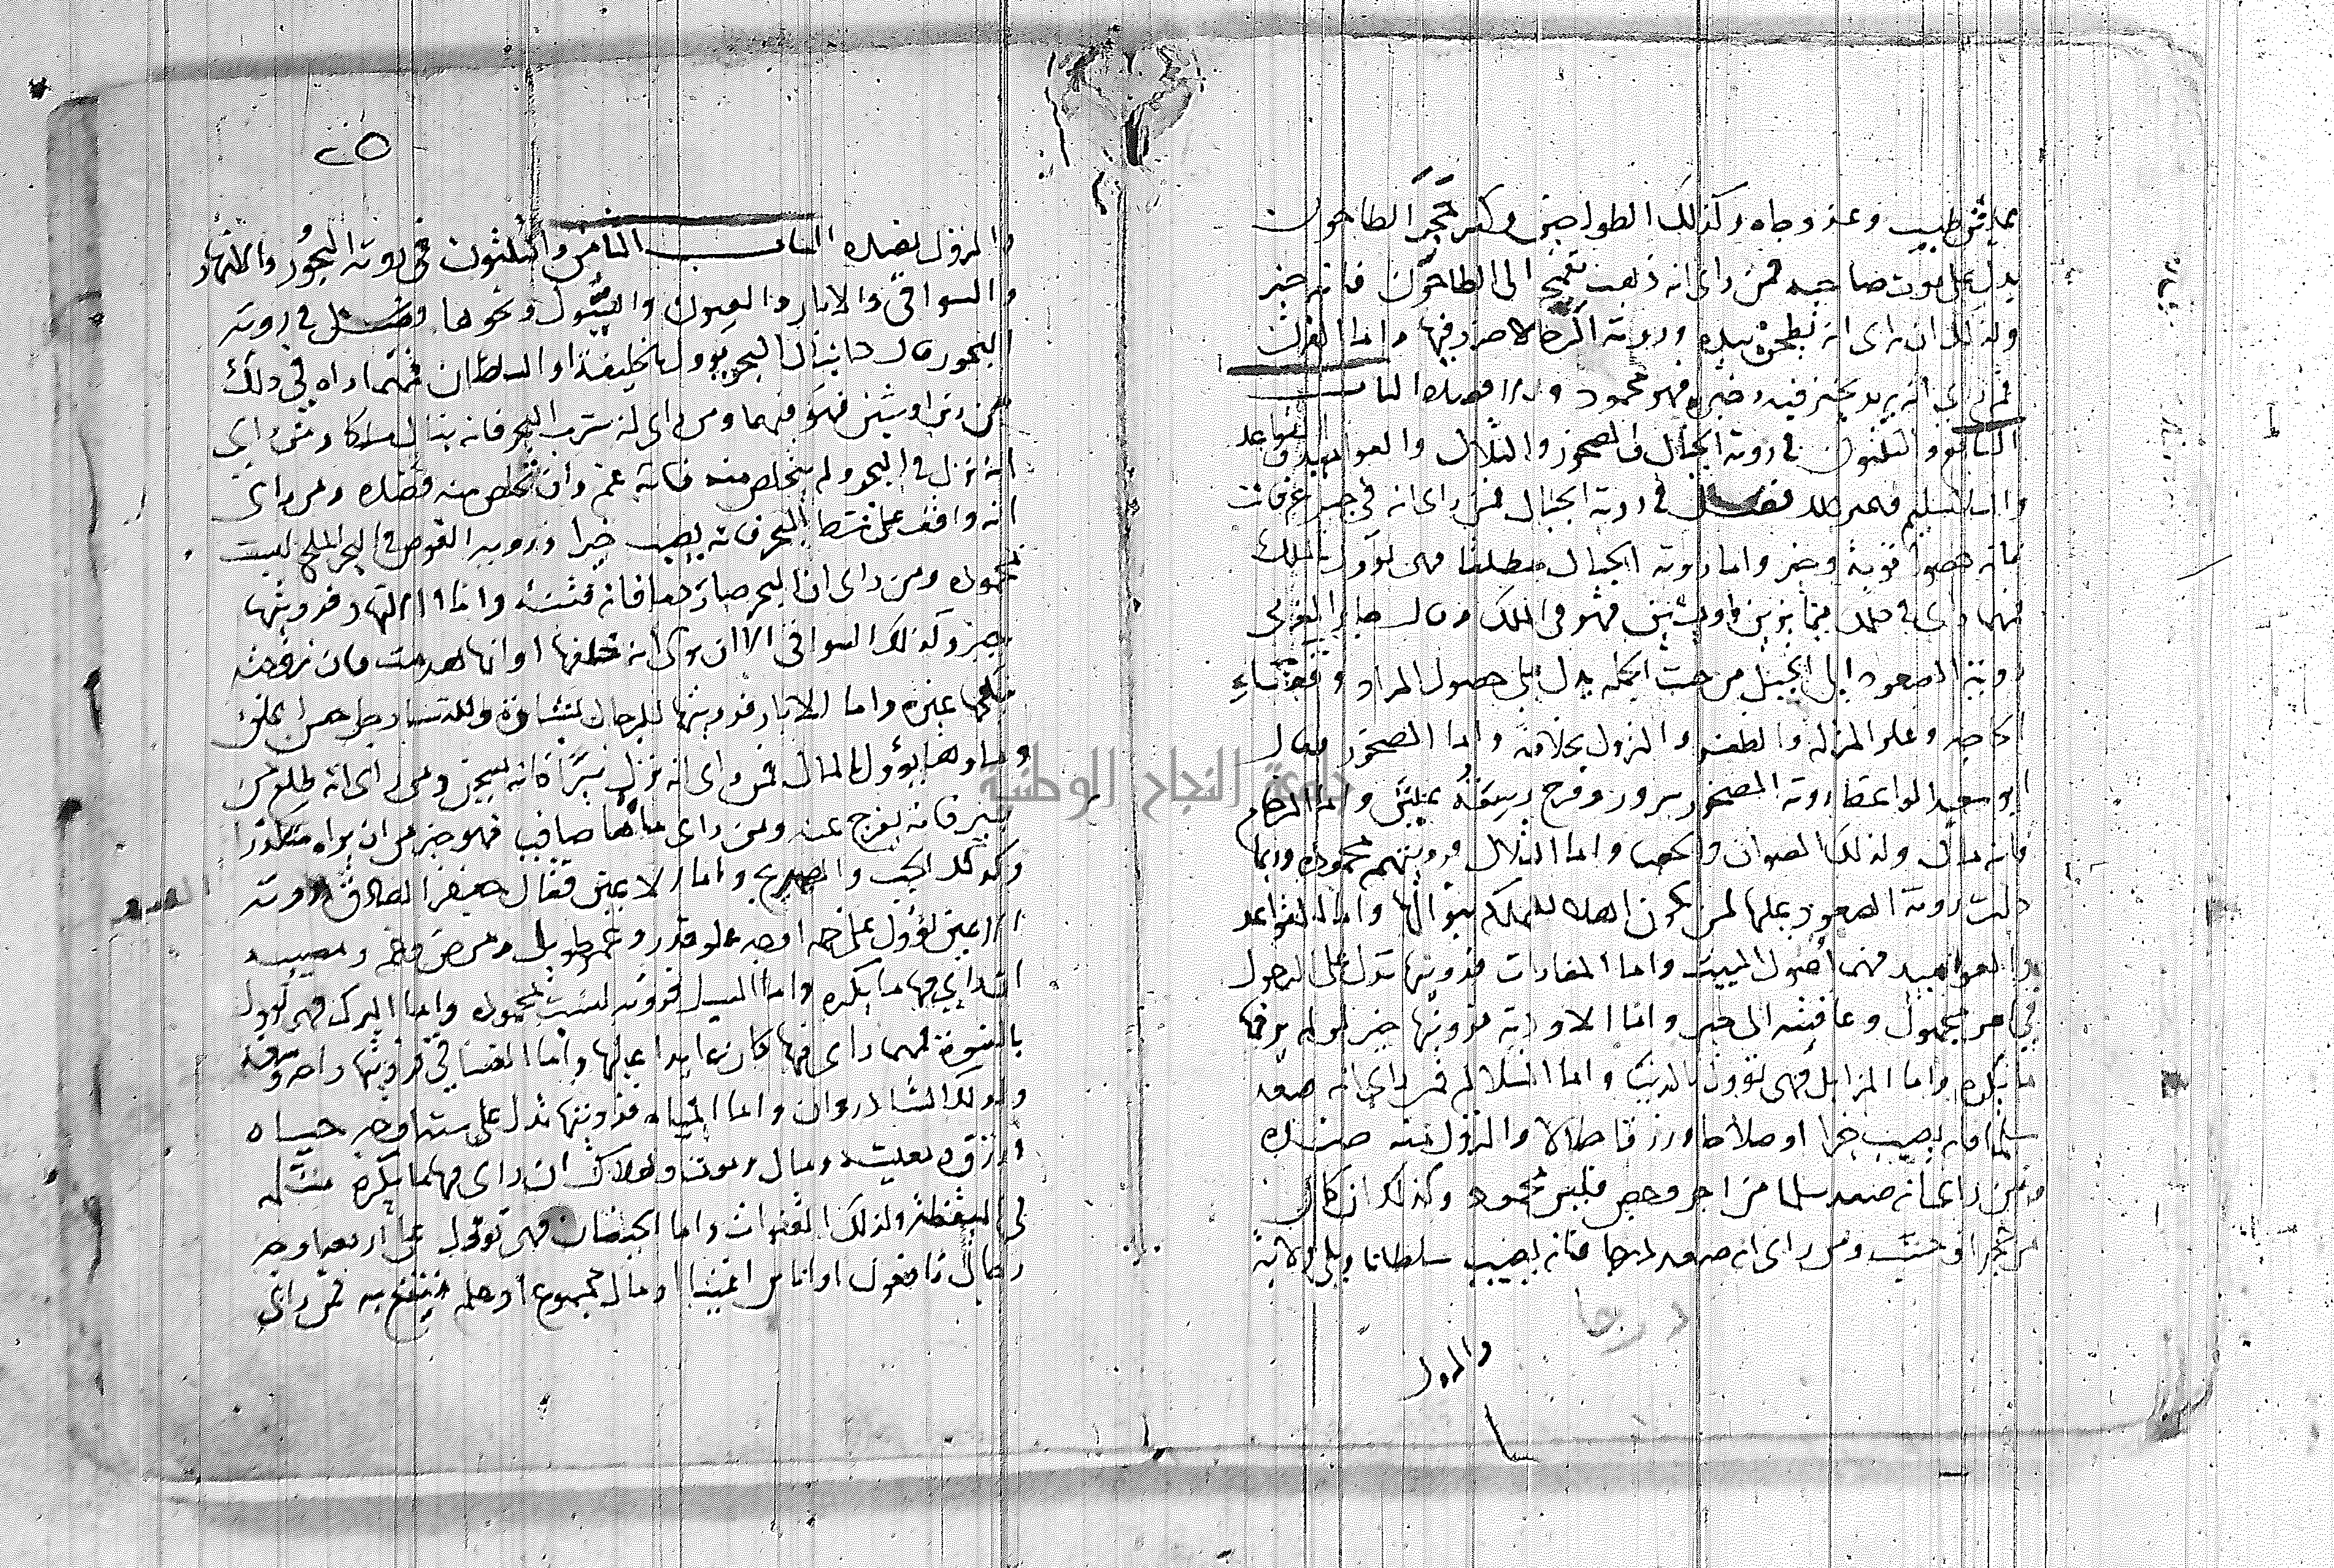 عيش طيب وعز وجاه وكذلك الطواحين وكسر حجر الطاحون
يدل على موت صاحبه فمن راى انه ذهب بقمح الى الطاحون فانه خير
وكذلك ان راى انه يطحن بيده وروية الرحا لا خير فيها واما الفرن
فمن راى انه يريد يخبز فيه وخبز فهو محمود والا فضده الباب
السابع والثلثون في روية الجبال والصخور والتلال والعواميد والقواعد
والسلاليم فصل في روية الجبال فمن راى انه في جبل عرفات
فانه حصول توبة وخير واما روية الجبال مطلقا فهى تؤول بالملك
فمهما راى في ملك مما يزين او يشين فهو في الملك وقال جابر المغربي
روية الصعود الى الجبل من حيث الجملة يدل على حصول المراد وقضاء
الحاجة وعلو المنزلة والظفر والنزول بخلافه واما الصخور فقال
ابو سعيد الواعظ روية الصخور سرور وفرح وسعة عيش واما الرخام
فانه مال وكذلك الصوان والحصا واما التلال فرويتهم محمودة وربما
دلت روية الصعود عليها لمن يكون اهلا للمملكة بنوالها واما القواعد
والعواميد فهم اصول البيت واما المغارات فرويتها تدل على الدخول
في امر مجهول وعاقبته الى خير واما الاودية فرويتها خير لم ير فيها
ما يكره واما المزابل فهى تؤول بالدنيا واما السلالم فمن راى انه صعد
سلما فانه يصيب خيرا او صلاحا ورزقا حلالا والنزول منه ضده
ومن راى انه صعد سلما من اجر وجص فليس محمود وكذلك ان كان
من حجر او خشب ومن راى انه صعد درجا فانه يصيب سلطانا ويلى ولاية
والنزول
٢٥
والنزول بضده الباب الثامن والثلثون في روية البحور والانهار
والسواقي والابار والعيون والسيول ونحوها فصل في روية
البحور قال دانيال البحر يؤول بالخليفة او السلطان فمهما راه في ذلك
من زين او شين فهو فيهما ومن راى انه شرب البحر فانه ينال ملكا ومن راى
انه نزل في البحر ولم يخلص منه فانه غم وان تخلص منه فضده ومن راى
انه واقف على شط البحر فانه يصيب خيرا وروية الغوص في البحر المالح ليست
محمودة ومن راى ان البحر صار دما فانه فتنة واما الانهار فرويتها
خير وكذلك السواقي الا ان راى انه خلفها او انها هدمت فان
غيره واما الابار فرويتها للرجال بشارة وللنساء رجل حسن الخلق
وماؤها يؤول بالمال فمن راى انه نزل بئرا فانه يسجن ومن راى انه طلع من
بئر فانه يفرج عنه ومن راى ماها صافيا فهو خير من ان يراه متكدرا
وكذلك الجب والصهريج واما الاعين فقال جعفر الصادق روية
الاعين تؤول على خمسة اوجه علو قدر وعمر طويل ومرض وغم ومصيبة
ان راى فيها ما يكره واما السيل فرويته ليست محمودة واما البرك فهى تؤول
بالنسوة فمهما راى فيها كان عايدا عليها واما الفساقي فرويتها راحة وسرور
وكذلك الشادروان واما المياه فرويتها تدل على ستة اوجه حياة
ورزق ومعيشة ومال وموت وهلاك ان راى فيها ما يكره مثله
في اليقظة وكذلك القنوات واما الحيضان فهى تؤول على اربعة اوجه
رجال نافعون او اناس اغنيا او مال مجموع او علم ينتفع به فمن راى